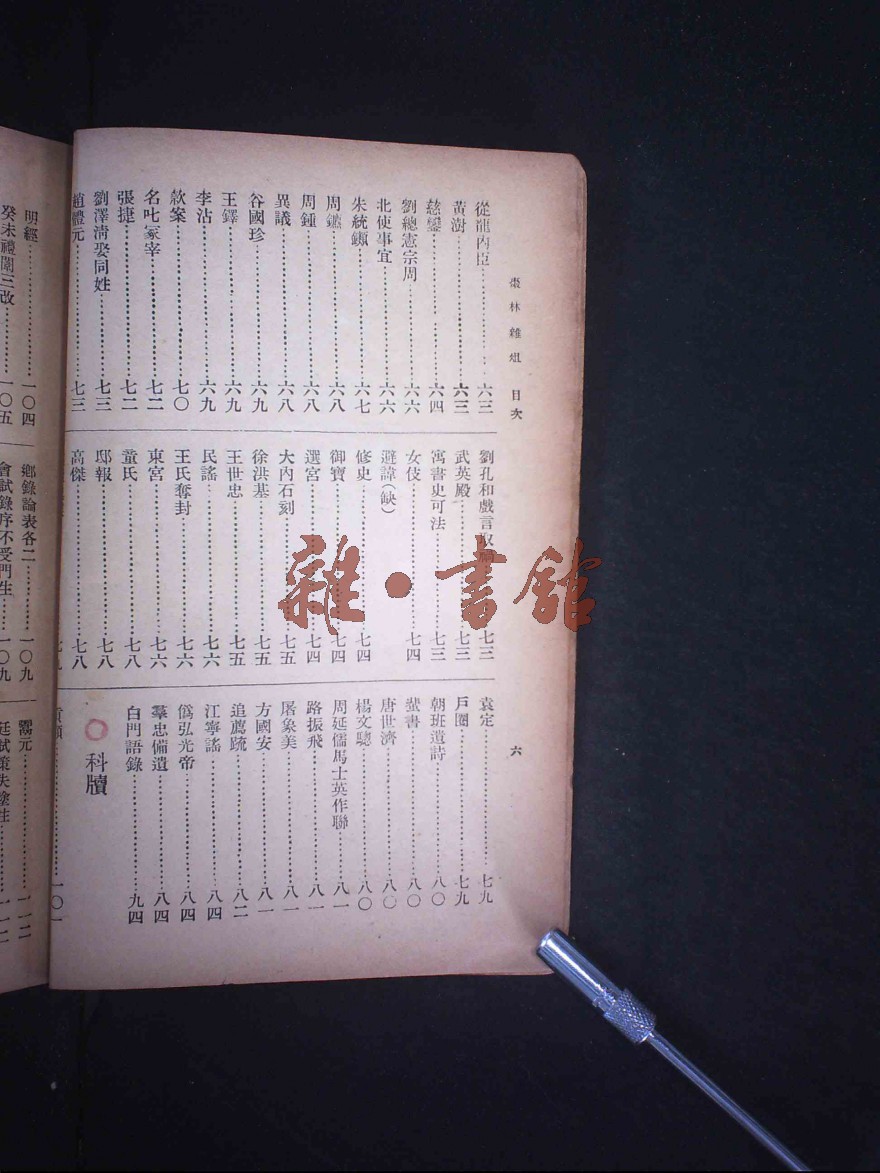 棗林雜俎 目次
六
從龍內臣……六三
黃澍……六三
慈鑾……六四
劉總憲宗周……六六
北使事宜……六六
朱統𨰥……六七
周鑣……六八
周鍾……六八
異議……六八
谷國珍……六九
王鐸……六九
李沾……六九
款案……七〇
名叱冢宰……七二
張捷……七二
劉澤清娶同姓……七三
趙體元……七三
劉孔和戲言取……七三
武英殿……七三
寓書史可法……七三
女伎……七四
避諱（缺）
修史……七四
御寶……七四
選宮……七四
大內石刻……七五
徐洪基……七五
王世忠……七五
民謠……七六
王氏奪封……七六
東宮……七六
童氏……七八
邸報……七八
高傑……七八
七九
袁定……七九
戶團……七九
朝班遺詩……八〇
蜚書……八〇
唐世濟……八〇
楊文驄……八〇
周延儒馬士英作聯……八一
路振飛……八一
屠象美……八一
方國安……八一
追薦疏……八二
江寧謠……八四
僞弘光帝……八四
羣忠備遺……八四
白門語錄……九四
科牘
貢額……一〇一
明經……一〇四
癸未禮闈三改……一〇五
鄉錄論表各二……一〇九
會試錄序不受門生……一〇九
鬻元……一一二
廷試策失塗注……一一二
雜·書館